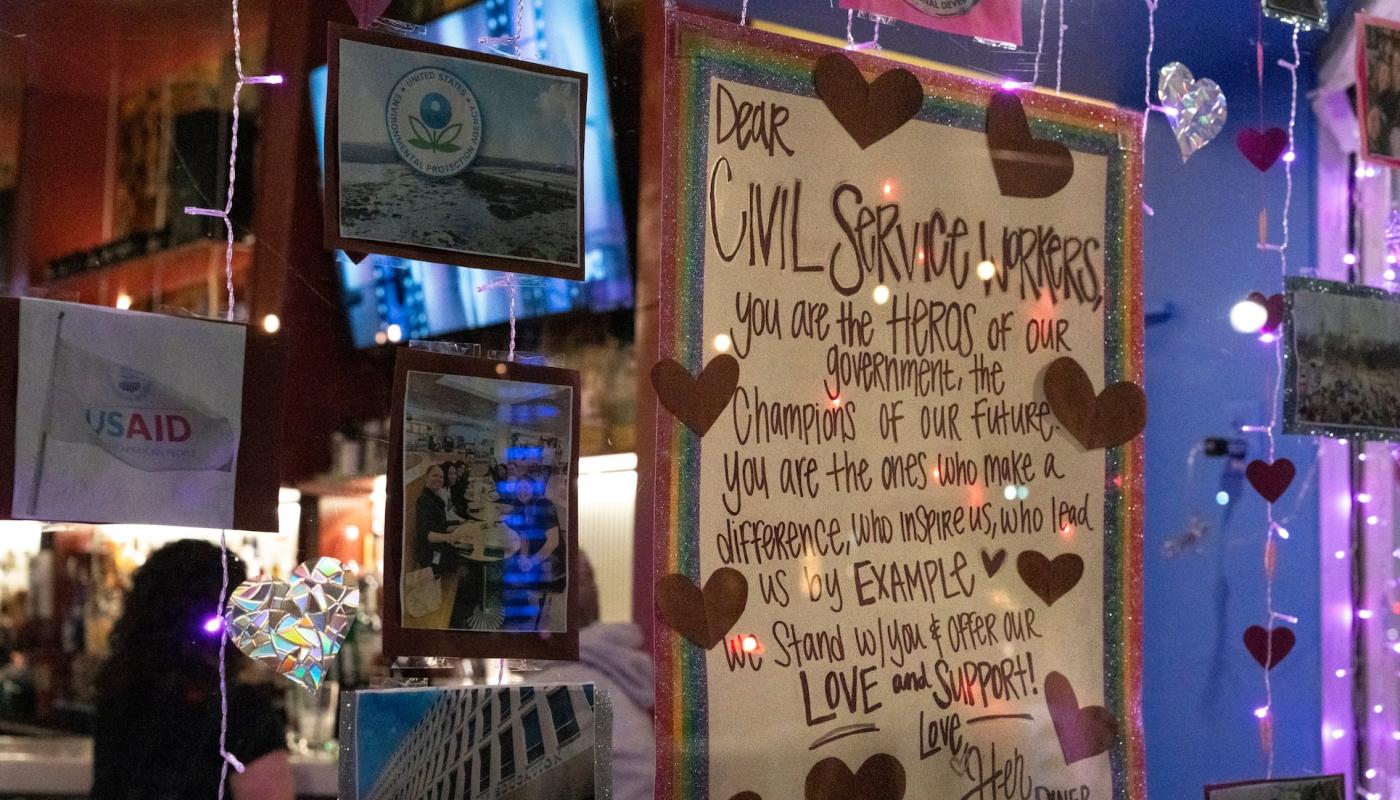 UNITED STATES
ENVIRONMENTAL PROTECTION AGENCY
USAID
AMERICAN PEOPLE
Dear
CIVIL SERVICE WORKERS,
you are the HEROS of our
government, the
Champions of our Future.
you are the ones who make a
difference, who inspire us, who lead
us by EXAMPLE
We Stand w/you & offer our
LOVE and SUPPORT!
Love,
DINER